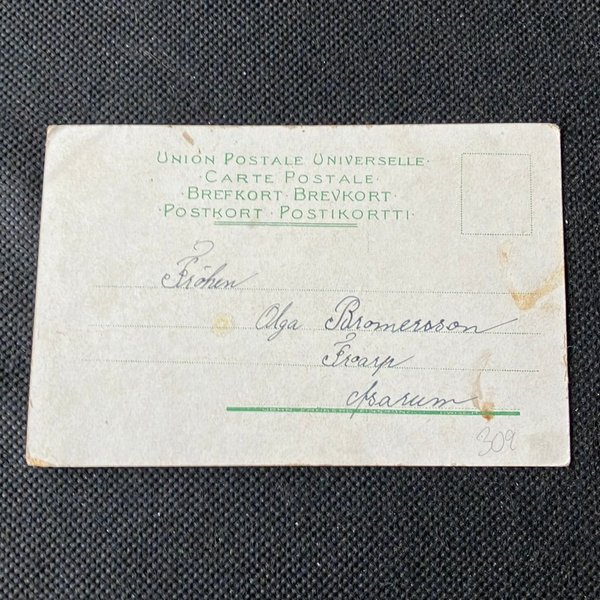 UNION POSTALE UNIVERSELLE·
·CARTE POSTALE·
·BREFKORT·BREVKORT·
·POSTKORT·POSTIKORTTI·
Fröken
Olga Bromersson
Froarp
Asarum
309